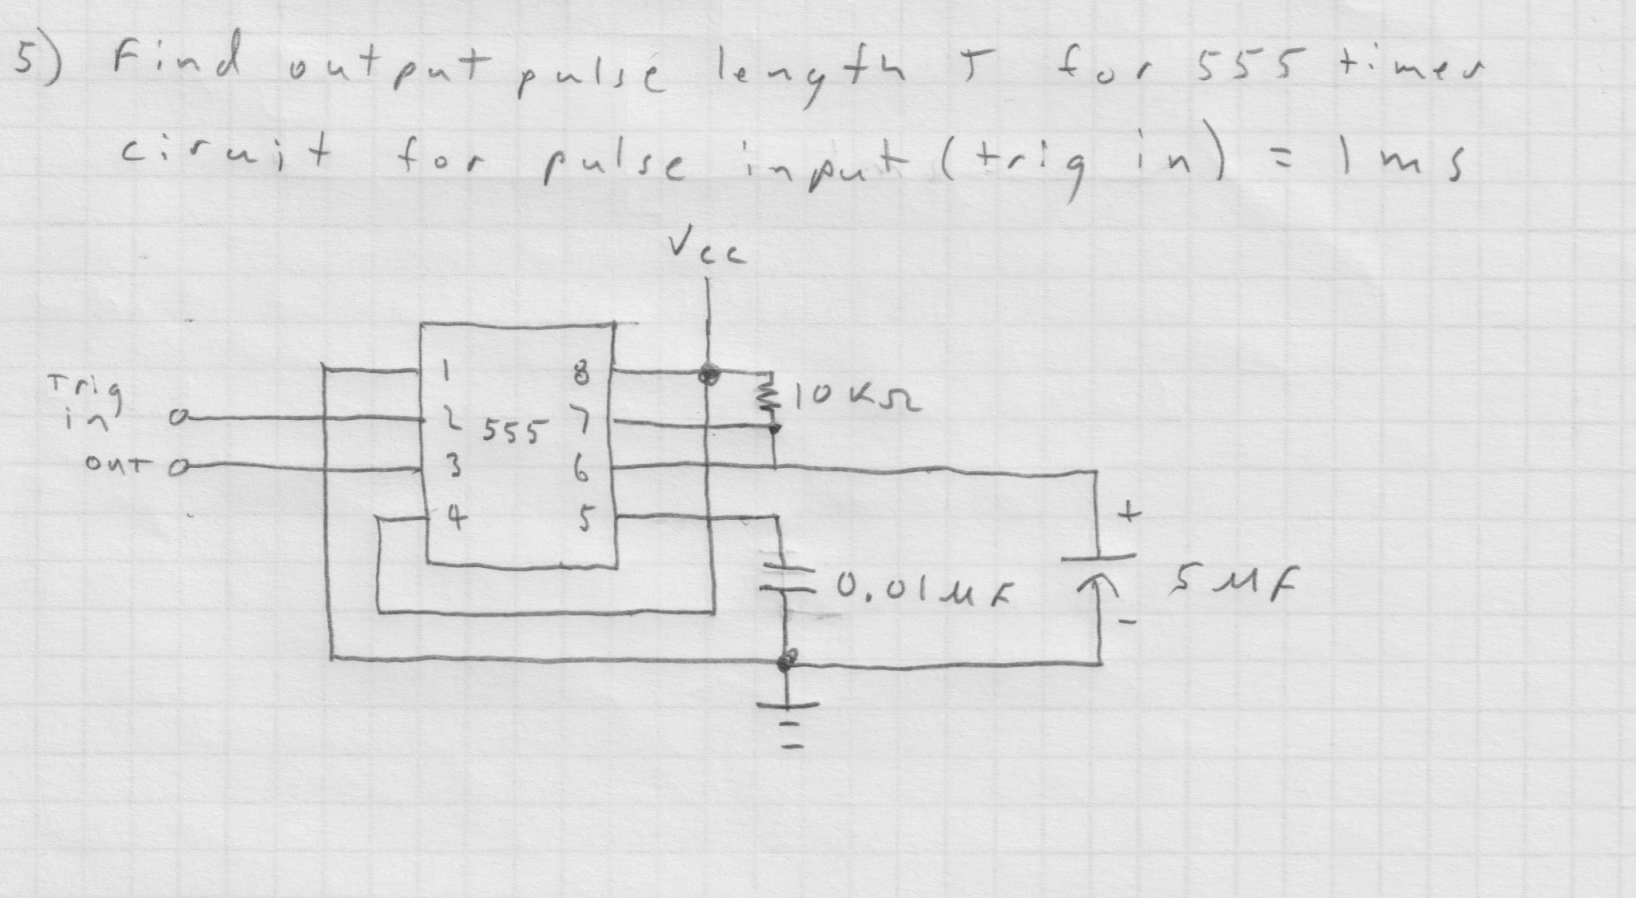 5) Find output pulse length T for 555 timer
ciruit for pulse input (trig in) = 1 ms
Vcc
Trig
in
out
1
2
3
4
555
8
7
6
5
10 KΩ
0.01 µF
+
5 µF
-